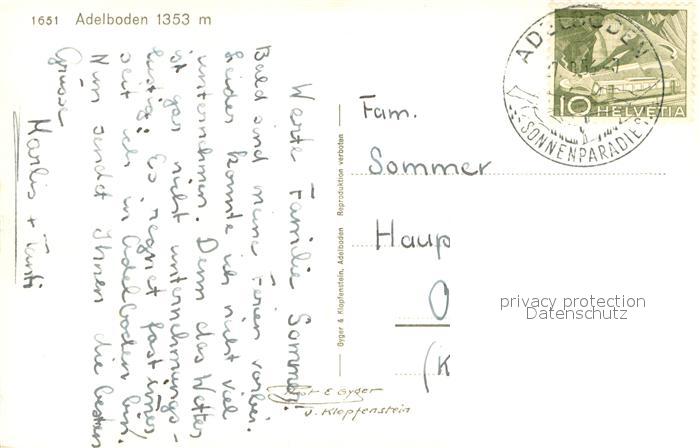 1651 Adelboden 1353 m
Werte Familie Sommer!
Bald sind meine Ferien vorbei.
Leider konnte ich nicht viel
unternehmen. Denn das Wetter
ist gar nicht unternehmungs-
lustig. Es regnet fast immer
seit ich in Adelboden bin.
Nun sendet Ihnen die besten
Grüsse
Marlis + Fanti
Gyger & Klopfenstein, Adelboden Reproduktion verboten
Phot E Gyger
u. Klopfenstein
ADELBODEN
SONNENPARADIES
10 HELVETIA
Fam.
Sommer
Haup
O
(K
privacy protection
Datenschutz